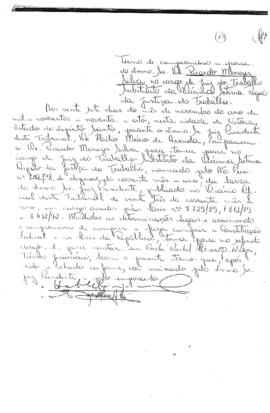 Termo de compromisso e posse
do Exmo. Sr. Dr. Ricardo Menezes
Silva no cargo de Juiz do Trabalho
Substituto da Décima Sétima Região
da Justiça do Trabalho.
Aos vinte dias do mês de novembro do ano de
mil e novecentos e noventa e oito, nesta cidade de Vitória,
Estado do Espírito Santo, perante o Exmo. Sr. Juiz Presidente
deste Tribunal, Dr. Hélio Mário de Arruda, compareceu
o Dr. Ricardo Menezes Silva para tomar posse no
cargo de Juiz do Trabalho Substituto da Décima Sétima
Região da Justiça do Trabalho, nomeado pelo Ato
do corrente mês e ano, da lavra
do Exmo. Sr. Juiz Presidente, publicado no Diário
deste Tribunal de vinte do corrente mês
e ano, em cargo criado pelas Leis nº 7.729/89,
e 8.432/92. Prestadas as determinações legais e assumindo
o compromisso de cumprir e fazer cumprir a Constituição
Federal e as leis da República, tomou posse no referido
cargo. E, para constar, eu,
lavrei o presente termo que, após
lido e achado conforme, vai assinado pelo Exmo. Sr.
Juiz Presidente e pelo empossado.